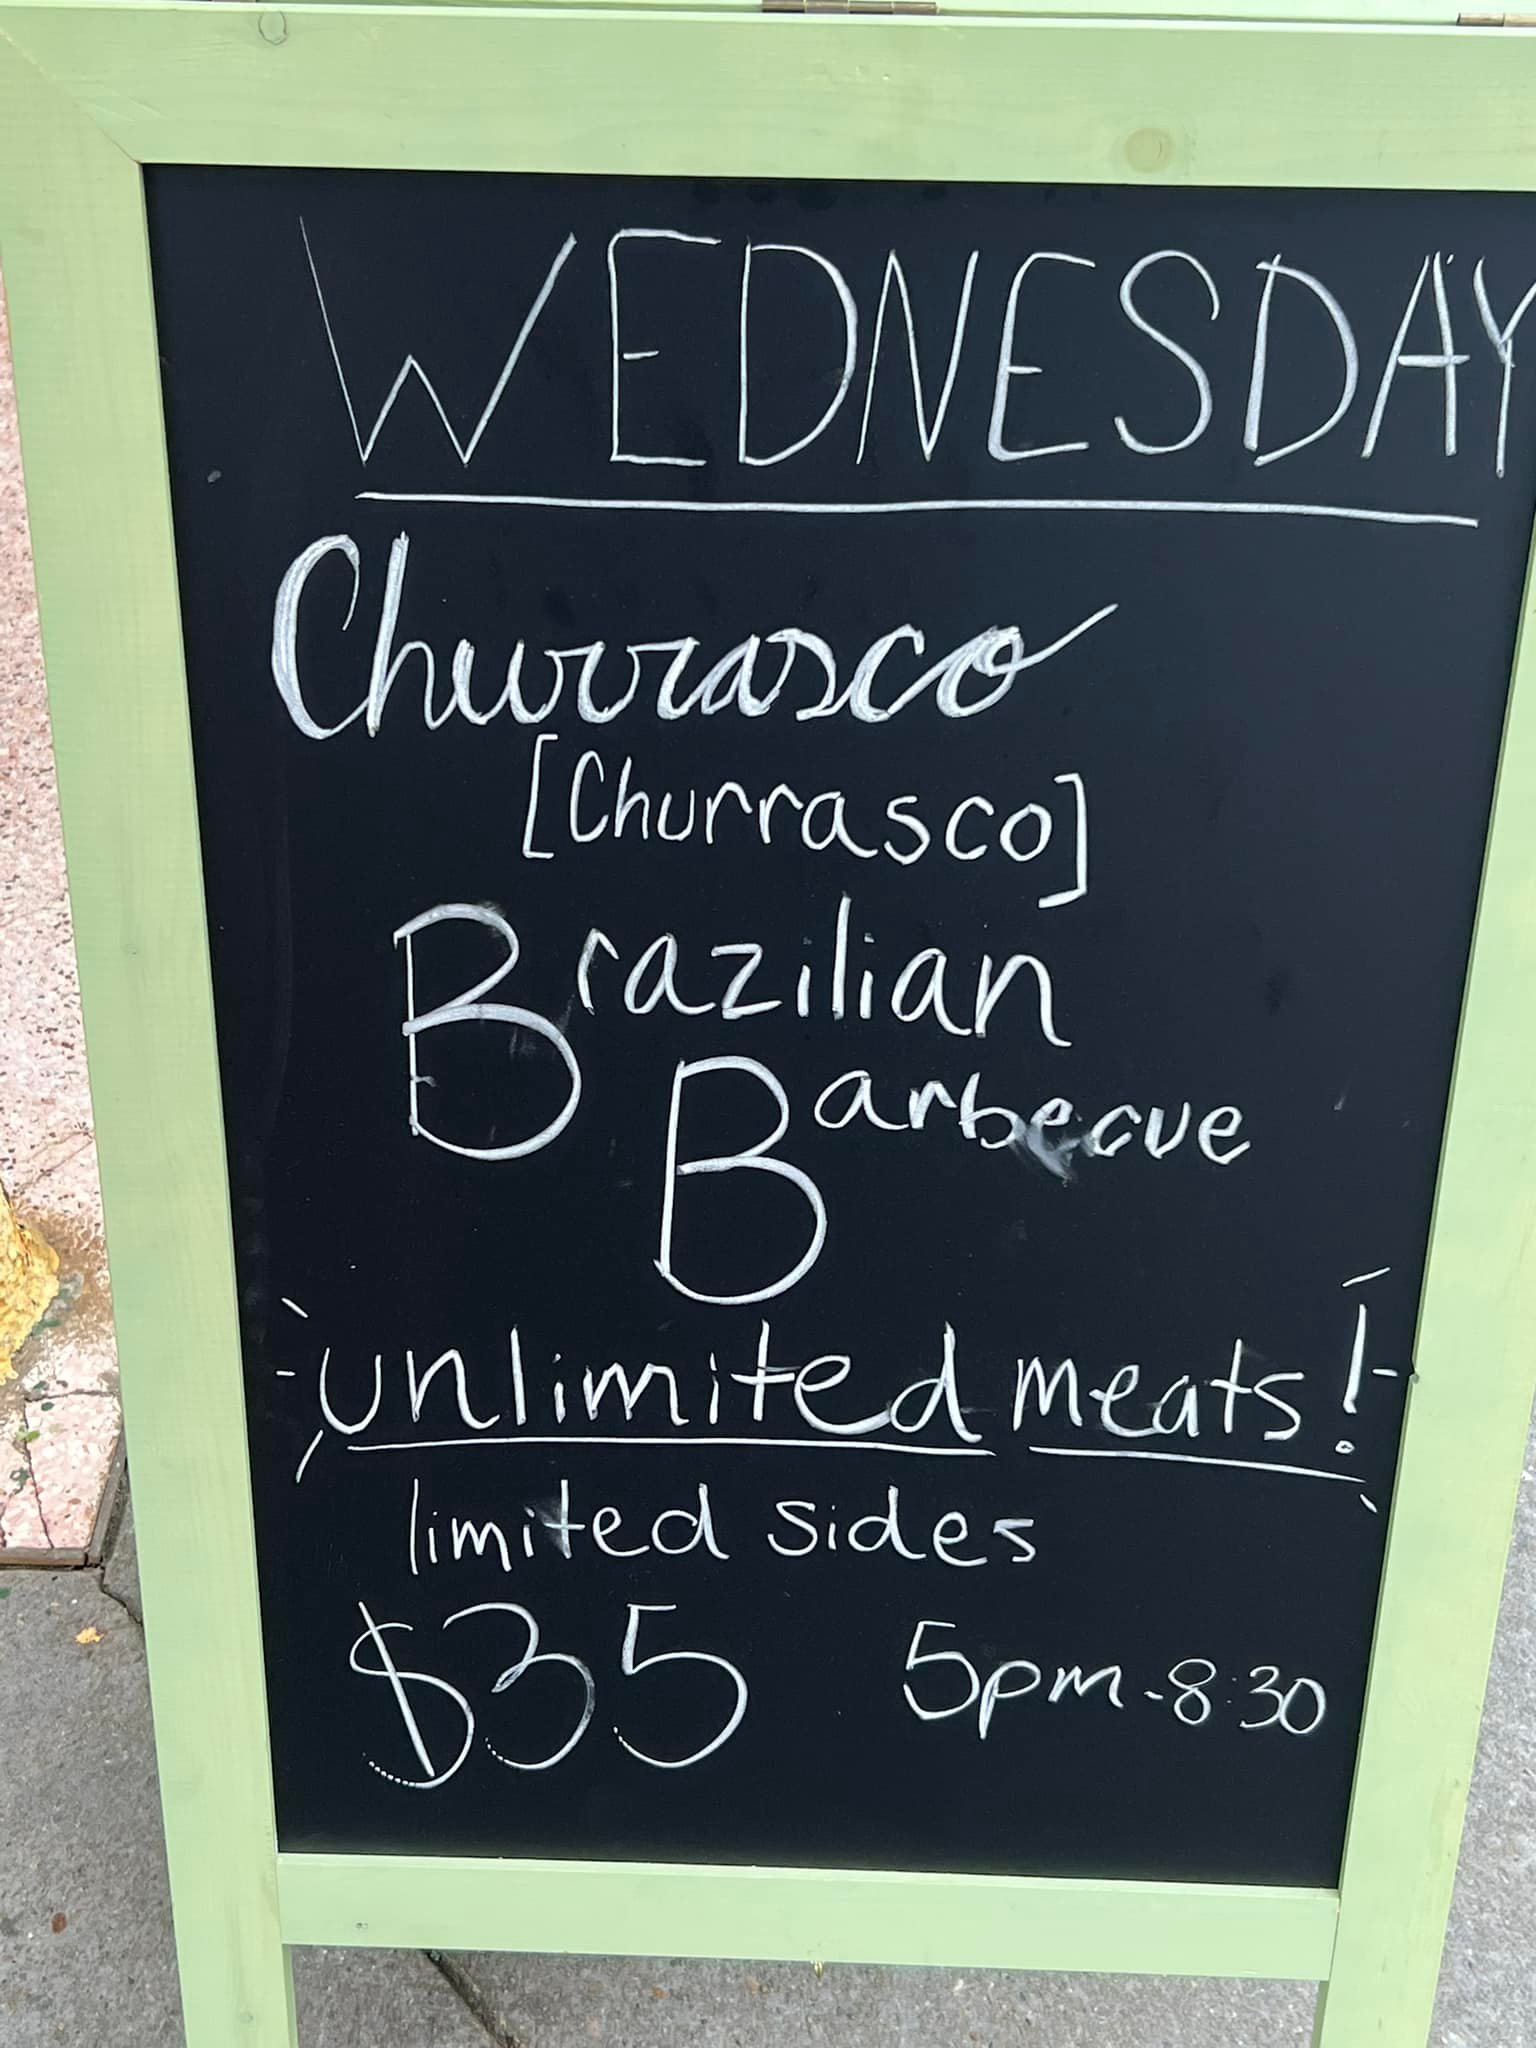 WEDNESDAY
Churrasco
[Churrasco]
Brazilian
Barbecue
unlimited meats!
limited sides
$35 5pm-8:30